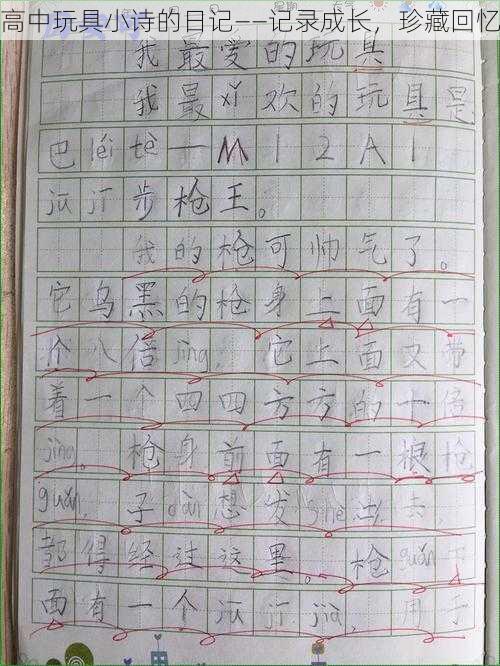 高中玩具小诗的日记——记录成长，珍藏回忆
我最爱的玩具
我最xǐ欢的玩具是
巴léi tè一M12A1
jū jī步枪王。
我的枪可帅气了。
它乌黑的枪身上面有一
个八倍jìng，它上面又带
着一个四四方方的十倍
jìng。枪身前面有一根枪
guǎn，子dàn想发shè出去，
都得经过这里。枪guǎn下
面有一个jū jī jià，用于